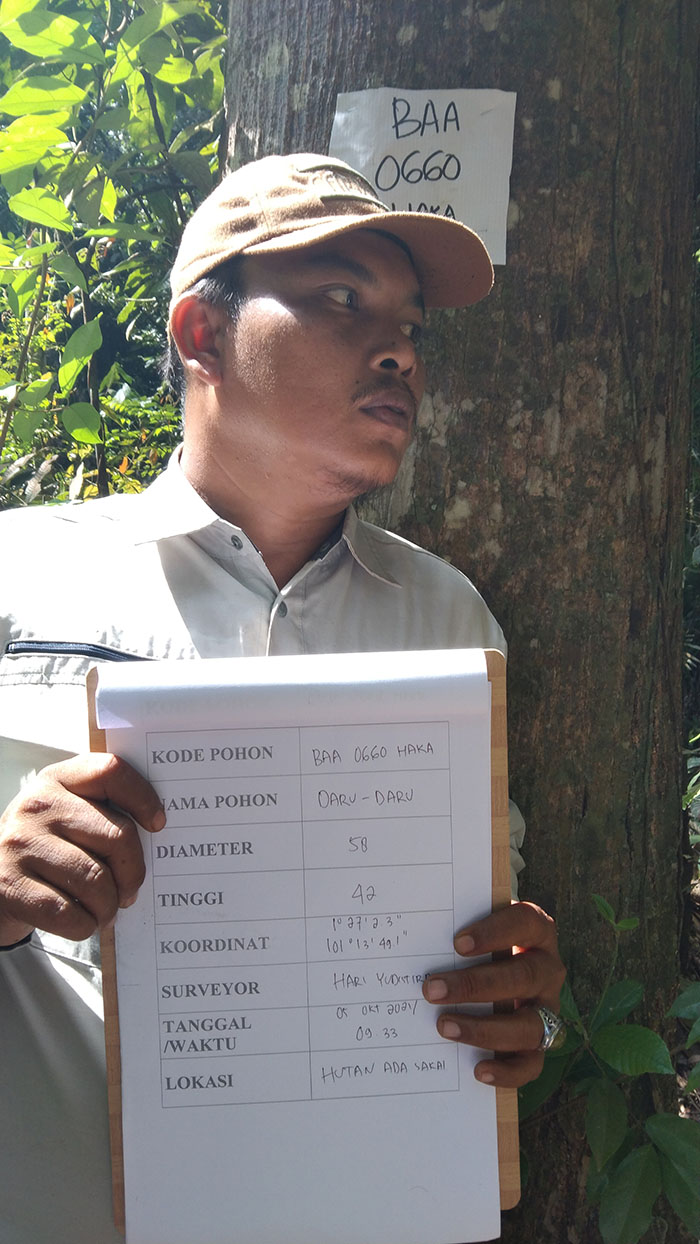 BAA
0660
HAKA
KODE POHON BAA 0660 HAKA
NAMA POHON DARU - DARU
DIAMETER 58
TINGGI 42
KOORDINAT 1° 27' 2 3"
101° 13' 49.1"
SURVEYOR HARI YUDISTIRA
TANGGAL 05 OKT 2021/
/WAKTU 09.33
LOKASI HUTAN ADA SAKAI